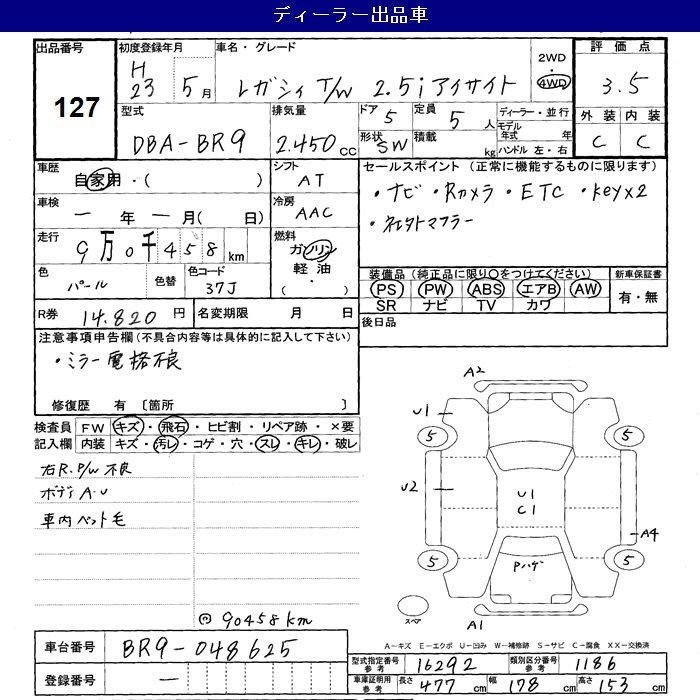 ディーラー出品車
出品番号 127
初度登録年月 H 23 5月
車名・グレード レガシィ T/W 2.5i アイサイト
2WD
4WD
評価点 3.5
外装 内装
C C
型式 DBA-BR9
排気量 2.450 cc
ドア 5
形状 SW
定員 5 人
積載 kg
ディーラー・並行
モデル年式 年
ハンドル 左・右
車歴 自家用・( )
シフト AT
車検 一 年 一 月( 日)
冷房 AAC
走行 9万0千458 km
燃料 ガソリン
軽油
( ・ )
色 パール
色替
色コード 37J
R券 14.820 円
名変期限 月 日
セールスポイント(正常に機能するものに限ります)
・ナビ ・Rカメラ ・ETC ・key×2
装備品(純正品に限り○をつけてください)
PS PW ABS エアB AW
SR ナビ TV カワ
新車保証書
有・無
後日品
注意事項申告欄(不具合内容等は具体的に記入して下さい)
・ミラー電格不良
修復歴 有 〔箇所 〕
検査員記入欄
FW キズ・飛石・ヒビ割・リペア跡・×要
内装 キズ・汚レ・コゲ・穴・スレ・キレ・破レ
右R.P/W 不良
ボディ A.U
車内ペット毛
90458km
A2
U1
5 5
U2
U1
C1
A4
5 5
Pハゲ
スペア
A1
A-キズ E-エクボ U-凹み W-補修跡 S-サビ C-腐食 XX-交換済
車台番号 BR9-048625
登録番号 一
型式指定番号参考 16292
類別区分番号参考 1186
車庫証明用参考 長さ 477 cm 幅 178 cm 高さ 153 cm